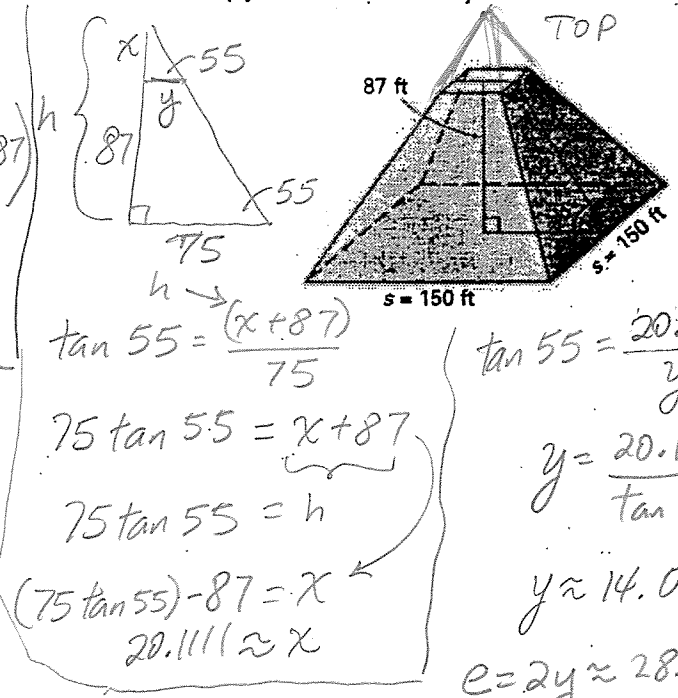 x
55
y
h
87
87)
55
75
TOP
87 ft
s = 150 ft
s = 150 ft
h →
tan 55 = (x+87)
75
75 tan 55 = x+87
75 tan 55 = h
(75 tan 55) - 87 = x
20.1111 ≈ x
tan 55 = 20.
y
y = 20.1
tan
y ≈ 14.0
e = 2y ≈ 28.